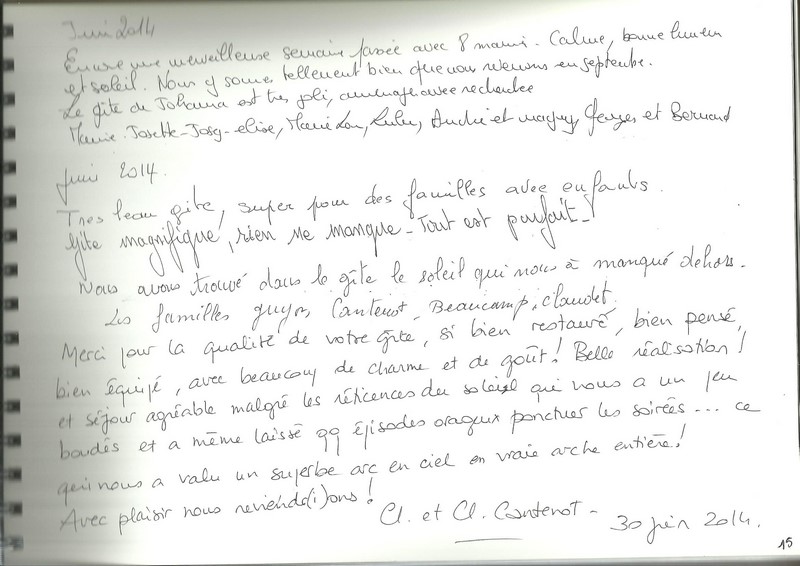 Juin 2014
Encore une merveilleuse semaine passée avec 8 mamis. Calme, bonne humeur
et soleil. Nous y sommes tellement bien que nous revenons en septembre.
Le gîte de Johanna est très joli, aménagé avec recherche
Marie-Josette-Josy-elise, Marie Lou, Lulu, André et maguy, Georges et Bernard
Juin 2014.
Très beau gîte, super pour des familles avec enfants.
Gîte magnifique, rien ne manque - Tout est parfait -
Nous avons trouvé dans le gîte le soleil qui nous à manqué dehors.
Les familles guyon, Contenot, Beaucamp, claudet.
Merci pour la qualité de votre gîte, si bien restauré, bien pensé,
bien équipé, avec beaucoup de charme et de goût! Belle réalisation!
et séjour agréable malgré les réticences du soleil qui nous a un peu
boudés et a même laissé qq épisodes orageux ponctuer les soirées... ce
qui nous a valu un superbe arc en ciel en vraie arche entière!
Avec plaisir nous reviendr(i)ons!
Cl. et Cl. Contenot - 30 juin 2014.
15